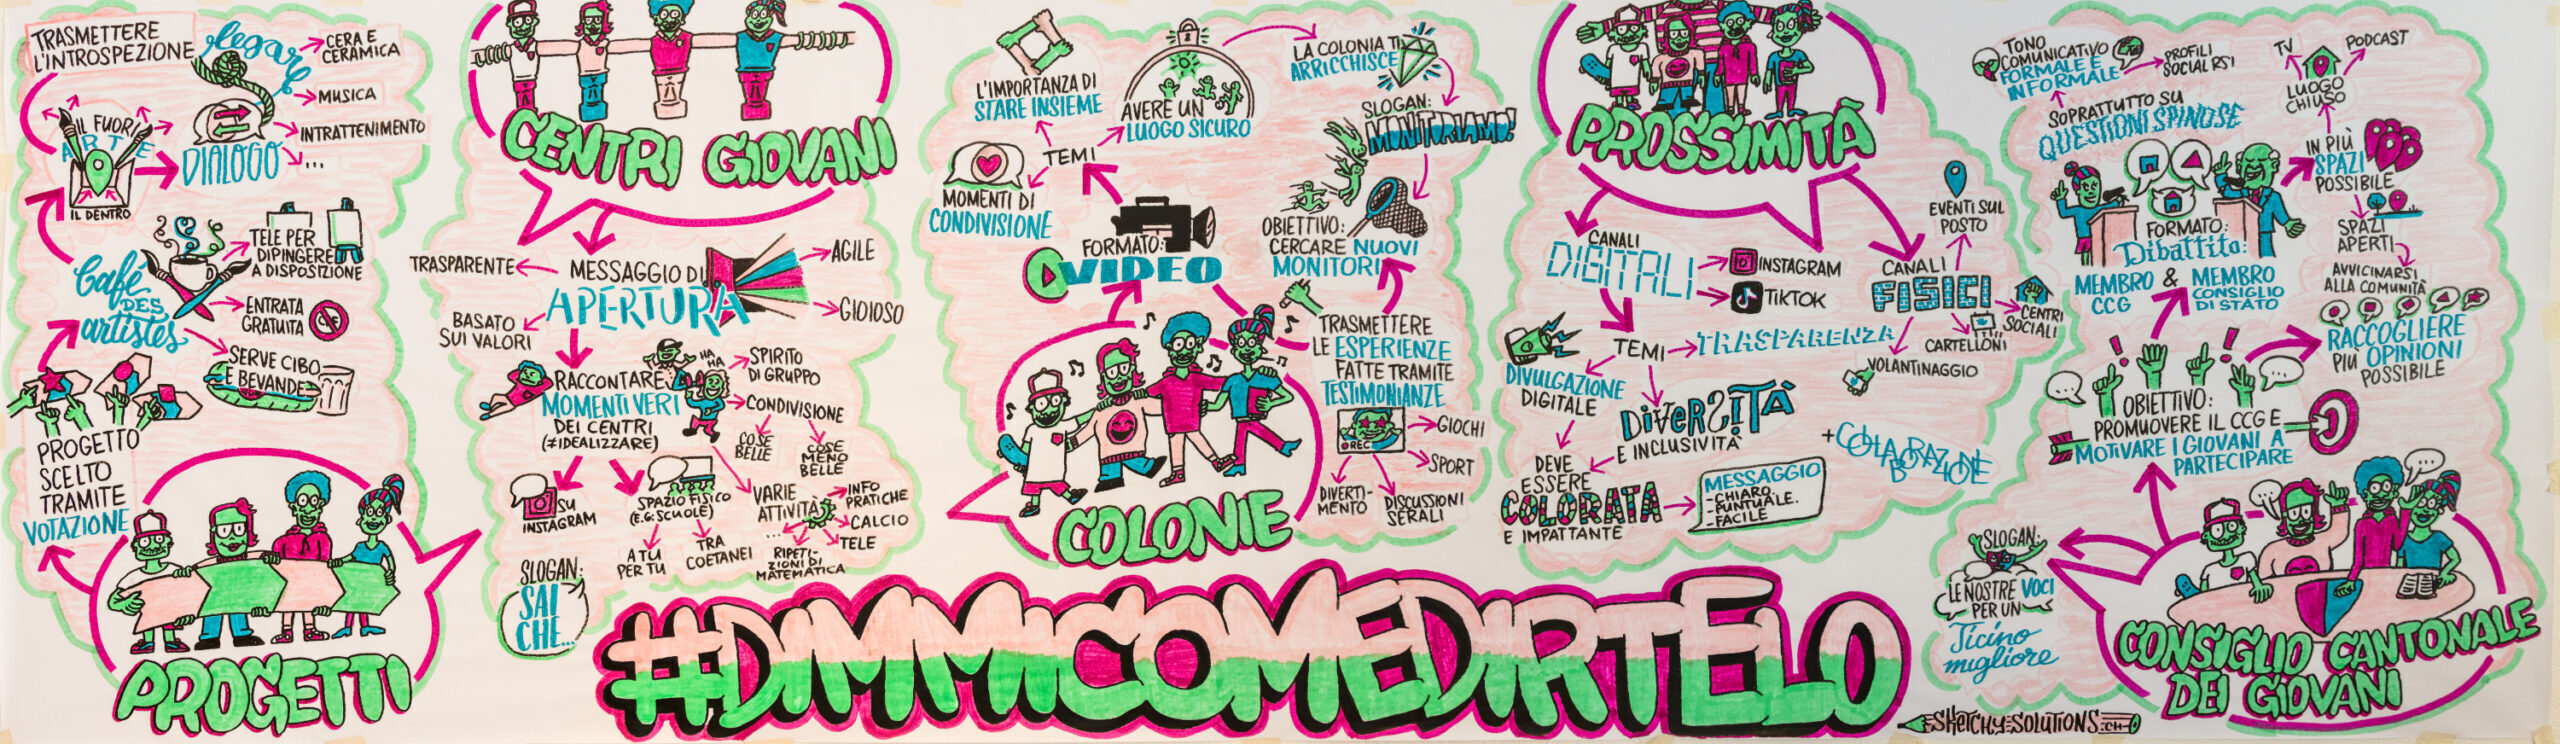 TRASMETTERE
L'INTROSPEZIONE
legare
CERA E
CERAMICA
MUSICA
INTRATTENIMENTO
...
IL FUORI
ARTE
IL DENTRO
DIALOGO
Café
DES
artistes
TELE PER
DIPINGERE
A DISPOSIZIONE
ENTRATA
GRATUITA
CHF
SERVE CIBO
E BEVANDE
PROGETTO
SCELTO
TRAMITE
VOTAZIONE
PROGETTI
CENTRI GIOVANI
MESSAGGIO DI
APERTURA
TRASPARENTE
AGILE
GIOIOSO
BASATO
SUI VALORI
RACCONTARE
MOMENTI VERI
DEI CENTRI
(≠IDEALIZZARE)
HA
HA
SPIRITO
DI GRUPPO
CONDIVISIONE
COSE
BELLE
COSE
MENO
BELLE
SU
INSTAGRAM
SPAZIO FISICO
(E.G. SCUOLE)
A TU
PER TU
TRA
COETANEI
VARIE
ATTIVITÀ
INFO
PRATICHE
CALCIO
TELE
...
RIPETI-
ZIONI DI
MATEMATICA
SLOGAN:
SAI
CHE...
COLONIE
FORMATO:
VIDEO
TEMI
MOMENTI DI
CONDIVISIONE
L'IMPORTANZA DI
STARE INSIEME
AVERE UN
LUOGO SICURO
LA COLONIA TI
ARRICCHISCE
SLOGAN:
MONITORIAMO!
OBIETTIVO:
CERCARE NUOVI
MONITORI
TRASMETTERE
LE ESPERIENZE
FATTE TRAMITE
TESTIMONIANZE
REC
GIOCHI
SPORT
DIVERTI-
MENTO
DISCUSSIONI
SERALI
PROSSIMITÀ
CANALI
DIGITALI
INSTAGRAM
TIKTOK
TEMI
TRASPARENZA
DIVULGAZIONE
DIGITALE
DIVERSITÀ
E INCLUSIVITÀ
DEVE
ESSERE
COLORATA
E IMPATTANTE
MESSAGGIO
-CHIARO.
-PUNTUALE.
-FACILE
CANALI
FISICI
EVENTI SUL
POSTO
CENTRI
SOCIALI
CARTELLONI
VOLANTINAGGIO
+COLLABORAZIONE
CONSIGLIO CANTONALE
DEI GIOVANI
OBIETTIVO:
PROMUOVERE IL CCG E
MOTIVARE I GIOVANI A
PARTECIPARE
FORMATO:
Dibattito:
MEMBRO
CCG
&
MEMBRO
CONSIGLIO
DI STATO
SOPRATTUTTO SU
QUESTIONI SPINOSE
TONO
COMUNICATIVO
FORMALE E
INFORMALE
PROFILI
SOCIAL RSI
TV
PODCAST
LUOGO
CHIUSO
IN PIÙ
SPAZI
POSSIBILE
SPAZI
APERTI
AVVICINARSI
ALLA COMUNITÀ
RACCOGLIERE
PIÙ OPINIONI
POSSIBILE
SLOGAN:
LE NOSTRE VOCI
PER UN
Ticino
migliore
#DIMMICOMEDIRTELO
SKETCHY-SOLUTIONS.CH